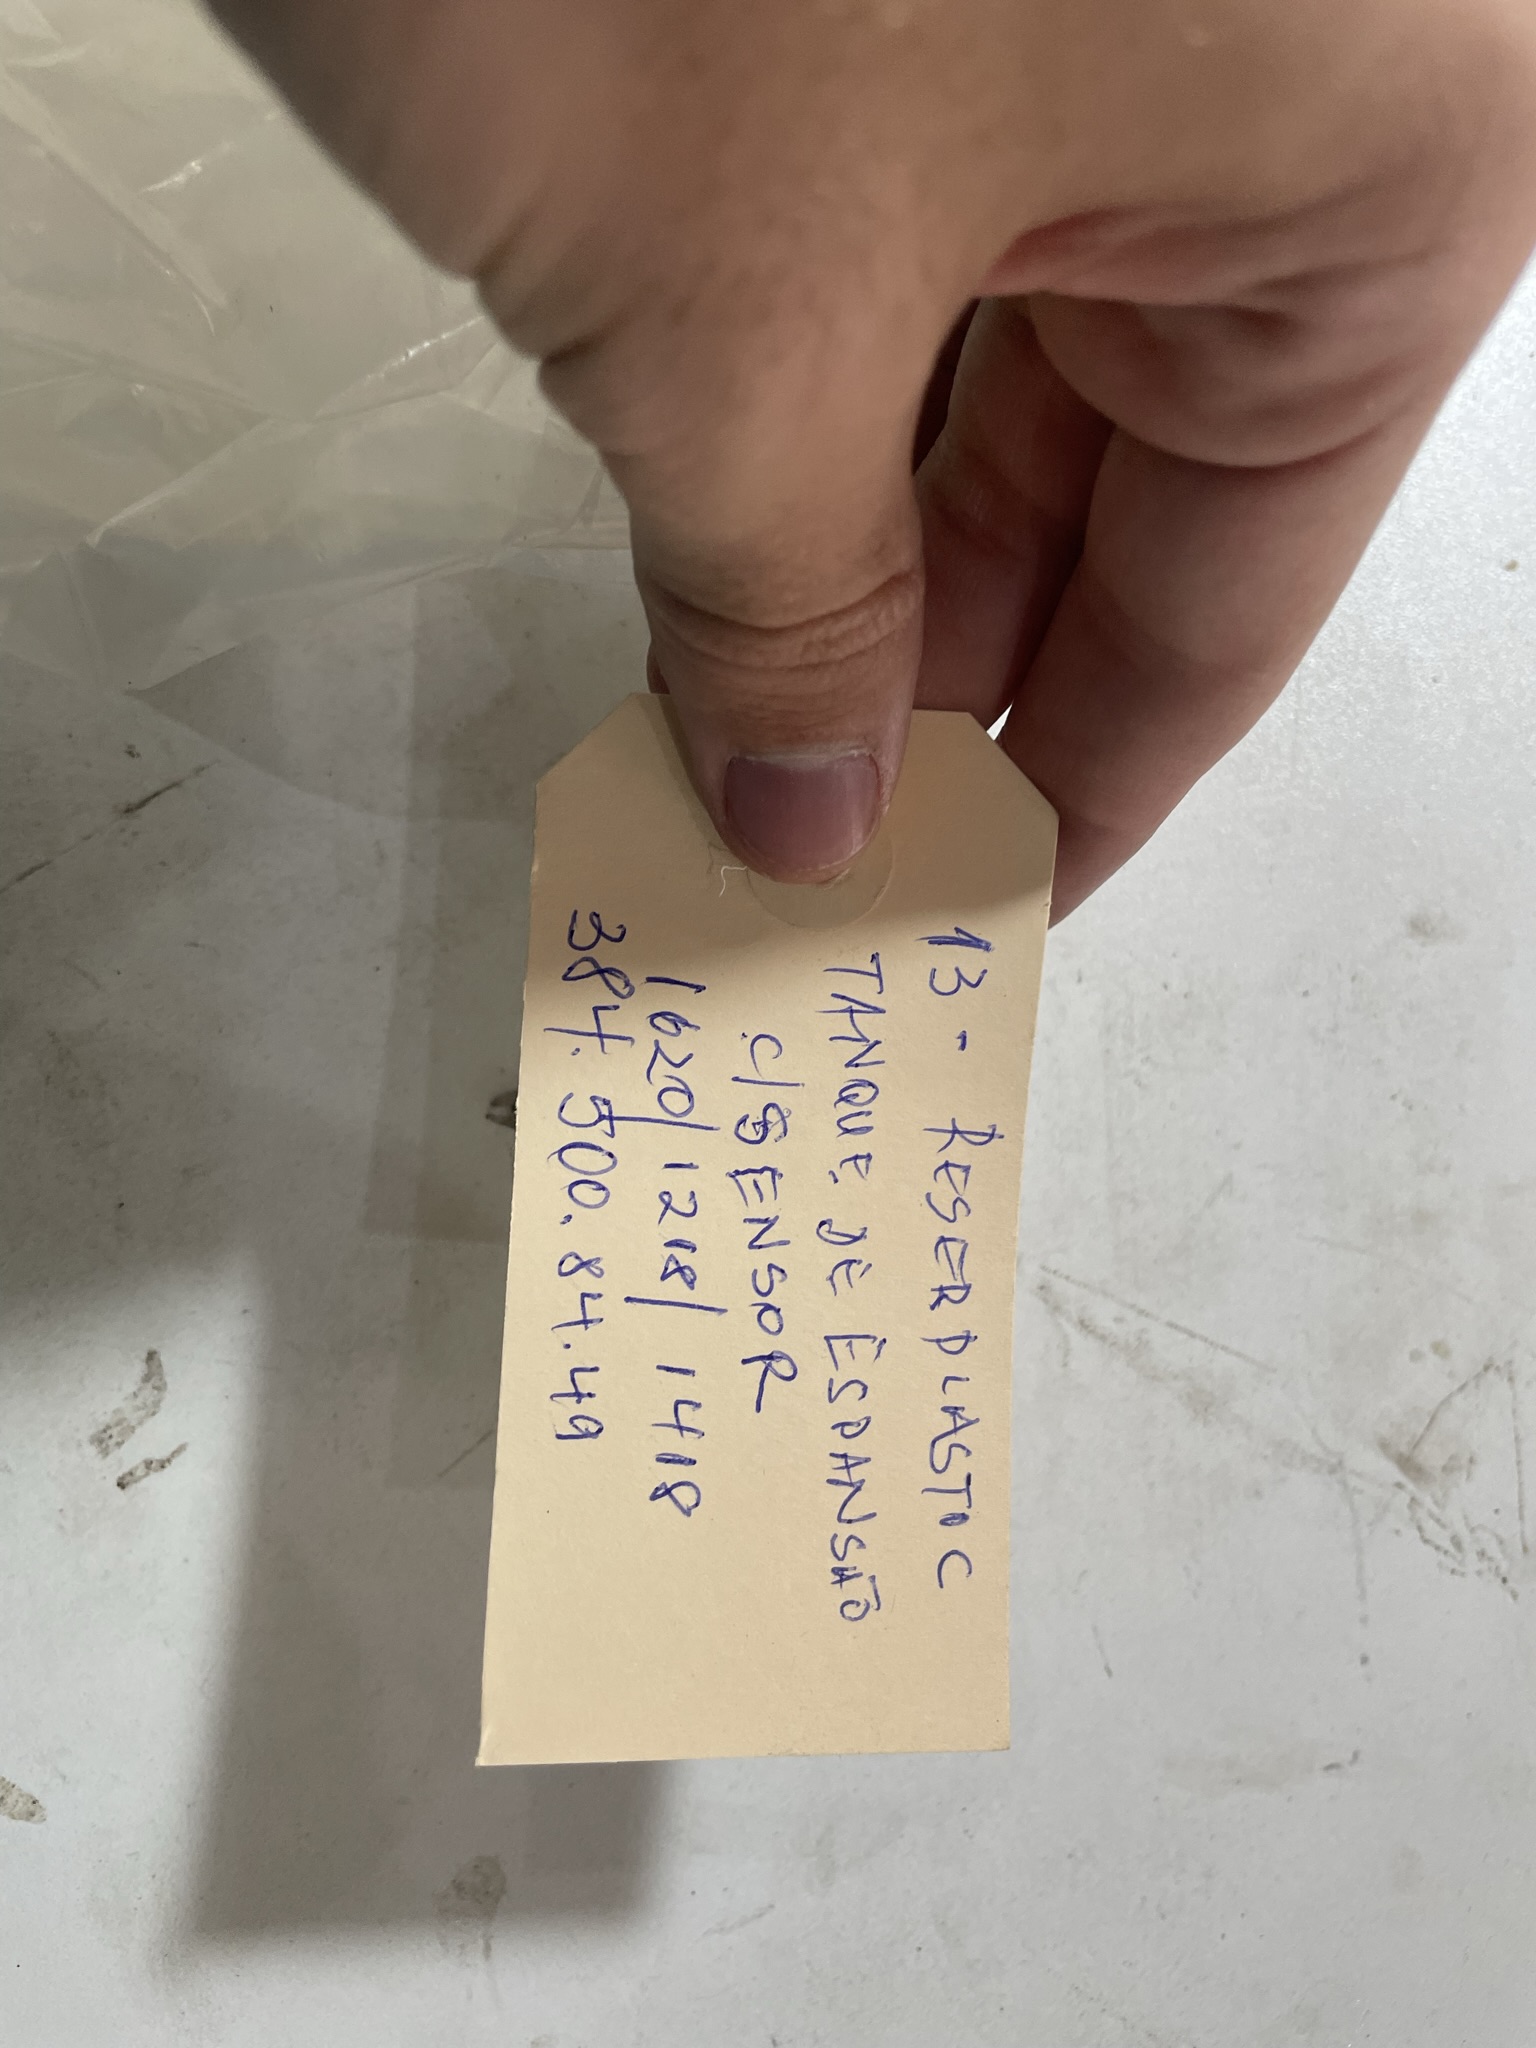 13 - RESERPLASTIC
TANQUE DE ESPANSÃO
C/SENSOR
1620/1218/1418
384.500.84.49